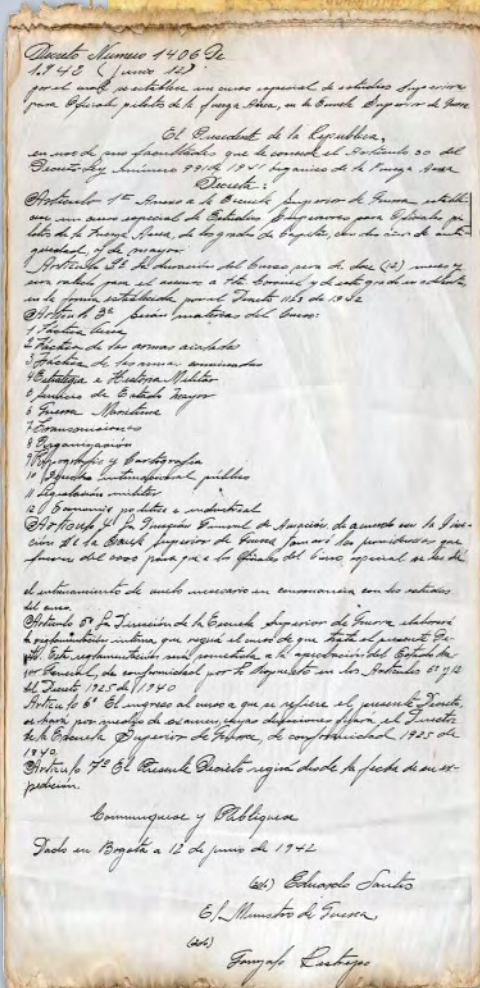 Decreto Numero 1406 De
1.942 (junio 12)
por el cual se establece un curso especial de estudios Superiores
para Oficiales pilotos de la fuerza Aérea, en la Escuela Superior de Guerra
El Presidente de la Republica,
en uso de sus facultades que le concede el Artículo 30 del
Decreto Ley número 991 de 1941 organico de la Fuerza Aerea
Decreta:
Artículo 1º Anexo a la Escuela Superior de Guerra, establé-
cese un curso especial de Estudios Superiores para Oficiales pi-
lotos de la Fuerza Aerea, de los grados de Capitan, con dos años de anti
guedad, y de mayor.
Artículo 2º La duración del Curso, sera de doce (12) meses y
sera valido para el ascenso a Tte. Coronel y de este grado en adelante,
en la forma establecida por el Decreto 1123 de 1942
Artículo 3º Serán materias del Curso:
1 Táctica Aerea
2 Táctica de las armas aisladas
3 Táctica de las armas combinadas
4 Estrategia e Historia Militar
5 Servicio de Estado Mayor
6 Guerra Maritima
7 Transmisiones
8 Organización
9 Topografia y Cartografia
10 Derecho internacional público
11 Legislación militar
12 Economia politica e industrial
Artículo 4º La Dirección General de Aviación, de acuerdo con la Direc-
ción de la Escuela Superior de Guerra tomará las providencias que
fueren del caso para que a los Oficiales del Curso especial se les dé
el entrenamiento de vuelo necesario en consonancia con los estudios
del curso.
Artículo 5º La Dirección de la Escuela Superior de Guerra elaborará
la reglamentación interna que regirá el curso de que trata el presente De-
creto. Esta reglamentación será sometida a la aprobación del Estado Ma-
yor General, de conformidad por lo dispuesto en los Artículos 6º y 12
del Decreto 1925 de 1940
Artículo 6º El ingreso al curso a que se refiere el presente Decreto,
se hará por medio de examen, cuyas disposiciones fijará, el Director
de la Escuela Superior de Guerra, de conformidad 1925 de
1940.
Artículo 7º El Presente Decreto regirá desde la fecha de su ex-
pedición.
Comuniquese y Públiquese
Dado en Bogotá a 12 de junio de 1942
(fdo) Eduardo Santos
El Ministro de Guerra,
(fdo)
Gonzalo Restrepo